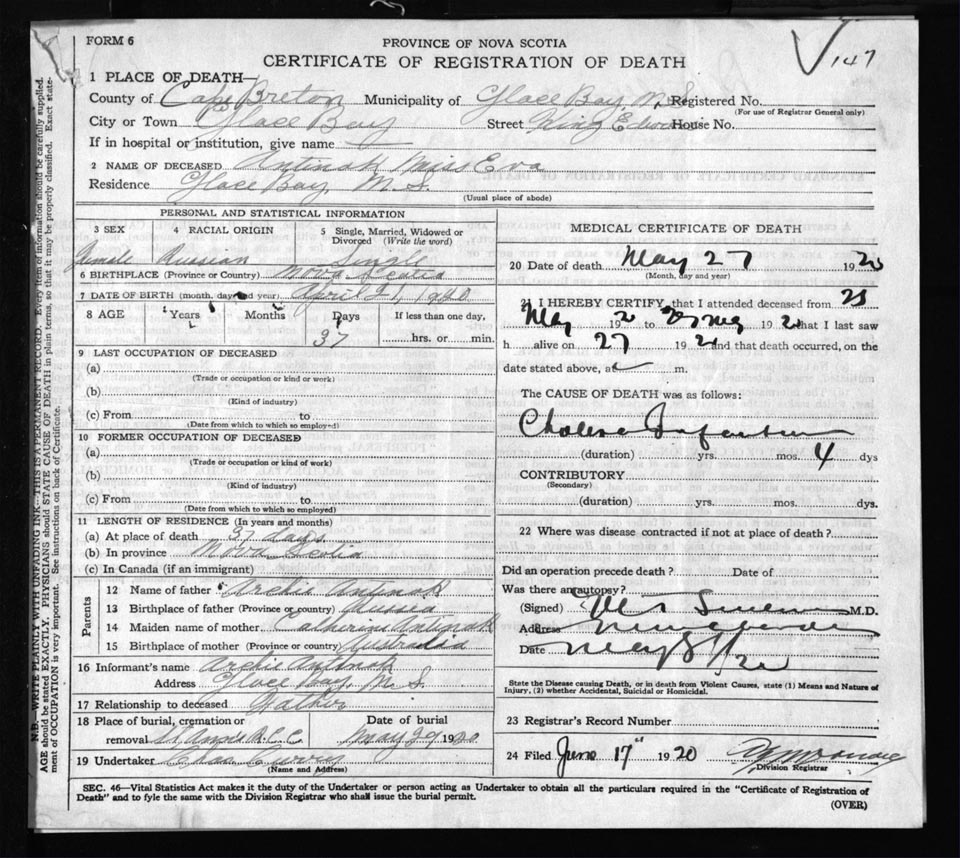 147
FORM 6
PROVINCE OF NOVA SCOTIA
CERTIFICATE OF REGISTRATION OF DEATH
1 PLACE OF DEATH—
County of Cape Breton Municipality of Glace Bay, N.S. Registered No.
(For use of Registrar General only)
City or Town Glace Bay Street King Edward House No.
If in hospital or institution, give name
2 NAME OF DECEASED Antinak Miss Eva
Residence Glace Bay, N.S.
(Usual place of abode)
PERSONAL AND STATISTICAL INFORMATION
3 SEX 4 RACIAL ORIGIN 5 Single, Married, Widowed or Divorced (Write the word)
Female Russian Single
6 BIRTHPLACE (Province or Country) Nova Scotia
7 DATE OF BIRTH (month, day and year) April 21, 1920
8 AGE Years Months Days If less than one day,
37 hrs. or min.
9 LAST OCCUPATION OF DECEASED
(a)
(Trade or occupation or kind or work)
(b)
(Kind of industry)
(c) From to
(Date from which to which so employed)
10 FORMER OCCUPATION OF DECEASED
(a)
(Trade or occupation or kind of work)
(b)
(Kind of industry)
(c) From to
(Date from which to which so employed)
11 LENGTH OF RESIDENCE (In years and months)
(a) At place of death 37 days
(b) In province Nova Scotia
(c) In Canada (if an immigrant)
Parents
12 Name of father Archie Antinak
13 Birthplace of father (Province or country) Russia
14 Maiden name of mother Catherine Antinak
15 Birthplace of mother (Province or country) Australia
16 Informant's name Archie Antinak
Address Glace Bay, N.S.
17 Relationship to deceased Father
18 Place of burial, cremation or Date of burial
removal R.C.C. May 29 1920
19 Undertaker Chas Curry
(Name and Address)
MEDICAL CERTIFICATE OF DEATH
20 Date of death May 27 1920
(Month, day and year)
21 I HEREBY CERTIFY that I attended deceased from 23
May 1920 to 27 May 1920 that I last saw
h alive on 27 1920 and that death occurred, on the
date stated above, at m.
The CAUSE OF DEATH was as follows:
Cholera Infantum
(duration) yrs. mos. 4 days
CONTRIBUTORY
(Secondary)
(duration) yrs. mos. dys.
22 Where was disease contracted if not at place of death?
Did an operation precede death? Date of
Was there an autopsy?
(Signed) M.D.
Address
Date May 31/20
State the Disease causing Death, or in death from Violent Causes, state (1) Means and Nature of
Injury, (2) whether Accidental, Suicidal or Homicidal.
23 Registrar's Record Number
24 Filed June 17" 1920
Division Registrar
SEC. 46—Vital Statistics Act makes it the duty of the Undertaker or person acting as Undertaker to obtain all the particulars required in the "Certificate of Registration of
Death" and to fyle the same with the Division Registrar who shall issue the burial permit.
(OVER)
N.B. WRITE PLAINLY WITH UNFADING INK—THIS IS A PERMANENT RECORD. Every item of information should be carefully supplied.
AGE should be stated EXACTLY. PHYSICIANS should STATE CAUSE OF DEATH in plain terms, so that it may be properly classified. Exact state-
ment of OCCUPATION is very important. See instructions on back of Certificate.